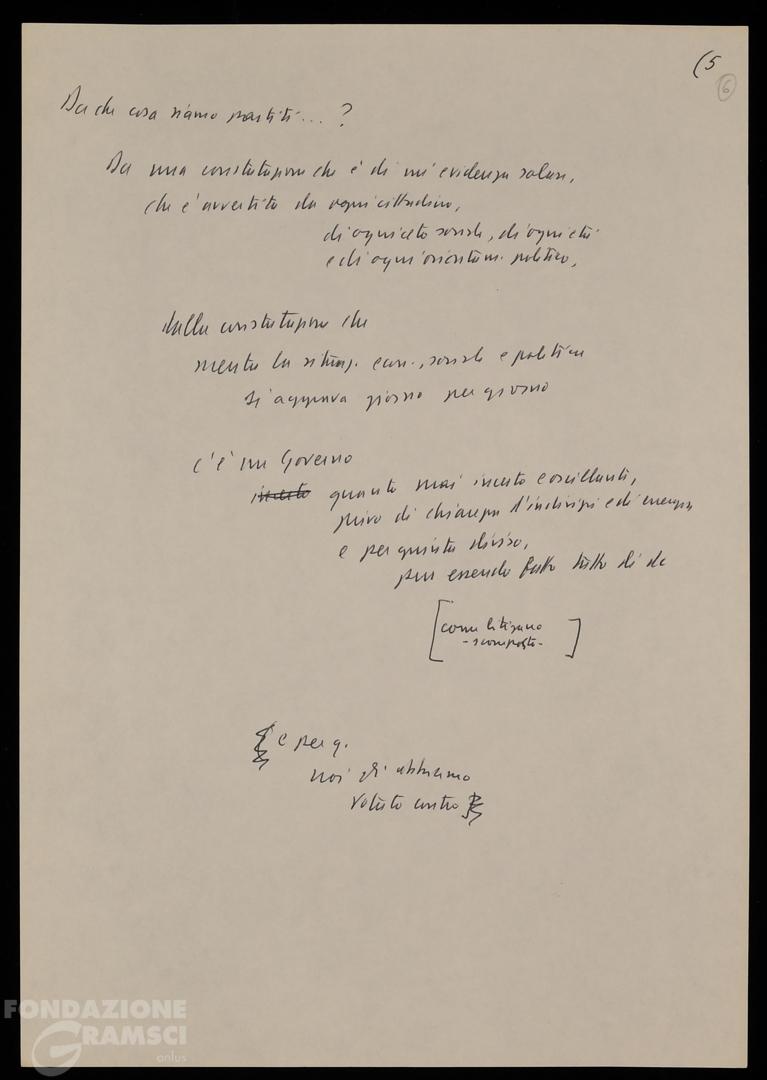 (5
6
Da che cosa siamo partiti...?
Da una constatazione che è di un'evidenza solare,
che è avvertita da ogni cittadino,
di ogni ceto sociale, di ogni età
e di ogni orientam. politico,
dalla constatazione che
mentre la situaz. econ., sociale e politica
si aggrava giorno per giorno
c'è un Governo
incerto quanto mai incerto e oscillante,
privo di chiarezza d'indirizzi e di energia
e per giunta diviso,
pur essendo fatto tutto di dc
[come litigano
- scomposto - ]
e per q.
noi gli abbiamo
votato contro
FONDAZIONE
GRAMSCI
onlus